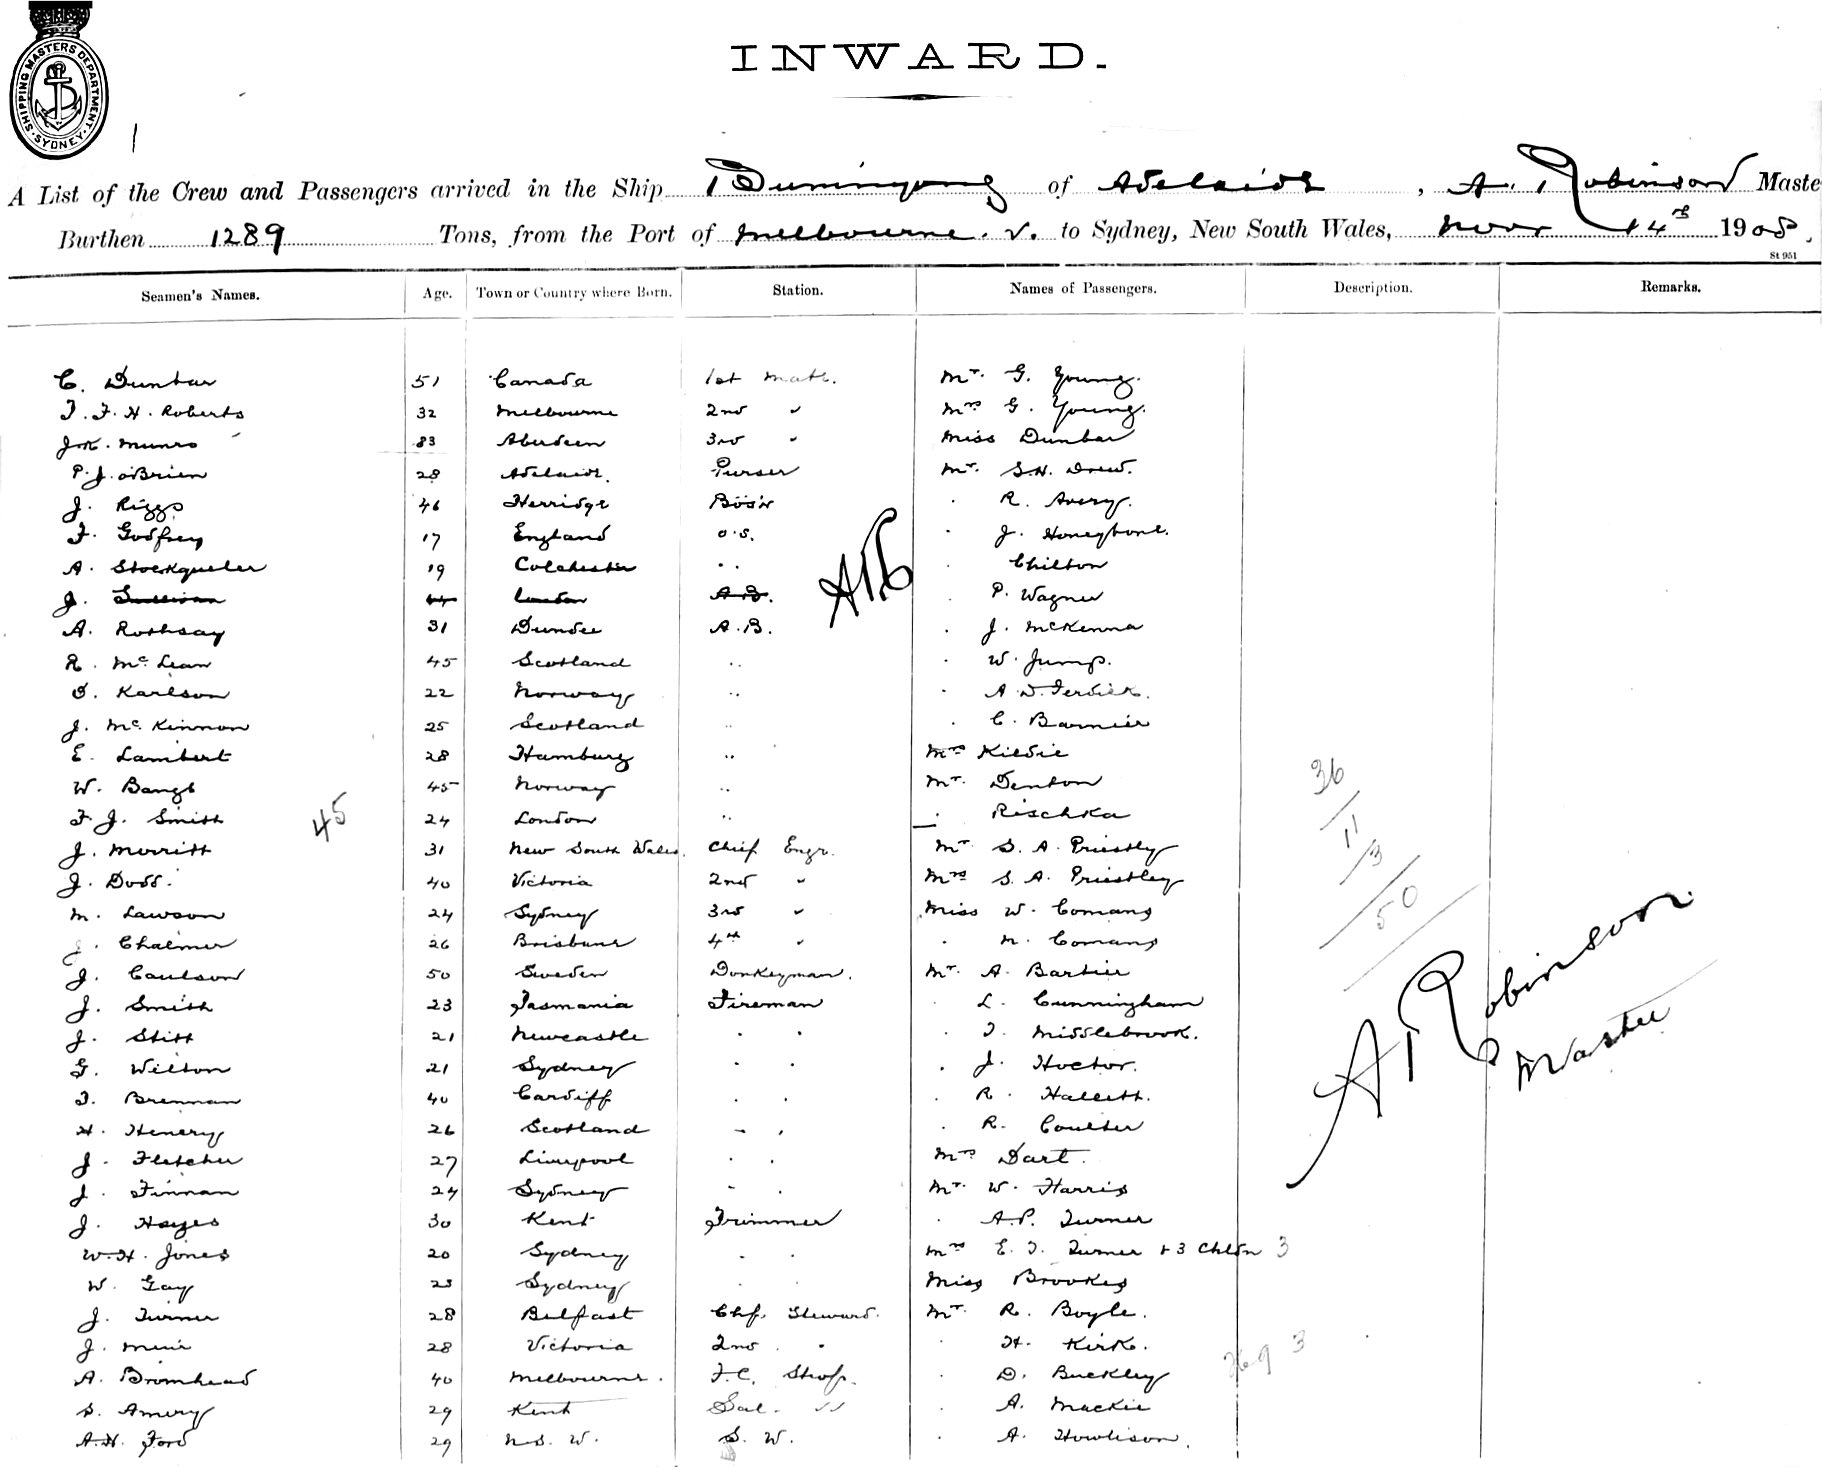 SHIPPING MASTERS DEPARTMENT
SYDNEY
INWARD.
A List of the Crew and Passengers arrived in the Ship Buninyong of Adelaide, A. Robinson Maste
Burthen 1289 Tons, from the Port of Melbourne. V. to Sydney, New South Wales, Novr 14th 1908.
St 951
Seamen's Names. Age. Town or Country where Born. Station. Names of Passengers. Description. Remarks.
C. Dunbar 51 Canada 1st Mate. Mr. G. Young.
T. F. H. Roberts 32 Melbourne 2nd " Mrs G. Young.
J.K. Munro 33 Aberdeen 3rd " Miss Dunbar
P.J. O'Brien 28 Adelaide. Purser Mr. S.H. Drew.
J. Riggs 46 Herridge Bos'n R. Avery.
F. Godfrey 17 England O.S. J. Honeybone.
A. Stockqueler 19 Colchester .. Chilton
J. Sullivan 44 London A.B. P. Wagner
A. Rothsay 31 Dundee A.B. J. McKenna
R. McLean 45 Scotland .. W. Jump.
O. Karlson 22 Norway .. A.D.
J. McKinnon 25 Scotland .. C. Barnier
E. Lambert 28 Hamburg .. Mrs Kildie
W. Bangs 45 Norway .. Mr. Denton
F. J. Smith 24 London .. Rischka
45
J. Morritt 31 New South Wales. Chief Engr. Mr S. A. Priestly
J. Dodd. 40 Victoria 2nd " Mrs S. A. Priestley
M. Lawson 24 Sydney 3rd " Miss W. Comans
J. Chalmer 26 Brisbane 4th " N. Comans
J. Caulson 50 Sweden Donkeyman. Mr. A. Barbier
J. Smith 23 Tasmania Fireman L. Cunningham
J. Stitt 21 Newcastle . . T. Middlebrook.
G. Wilton 21 Sydney . . J. Hoctor.
T. Brennan 40 Cardiff . . R. Hallett.
H. Henery 26 Scotland . . R. Coulter
J. Fletcher 27 Liverpool . . Mrs Dart.
J. Finnan 24 Sydney . . Mr. W. Harris
J. Hayes 30 Kent Trimmer A.P. Turner
W.H. Jones 20 Sydney . . Mrs E. T. Turner + 3 Chldn 3
W. Gay 23 Sydney . . Miss Brookes
J. Turner 28 Belfast Chf. Steward. Mr. R. Boyle.
J. Muir 28 Victoria 2nd . . H. Kirk.
A. Bromhead 40 Melbourne. F.C. D. Buckley
S. Amery 29 Kent Sal. " A. Mackie
A.H. Ford 29 N.S.W. S. W. A. Howlison.
36
11
3
50
A Robinson
Master
3